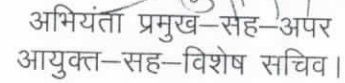 अभियंता प्रमुख–सह–अपर
आयुक्त–सह–विशेष सचिव।